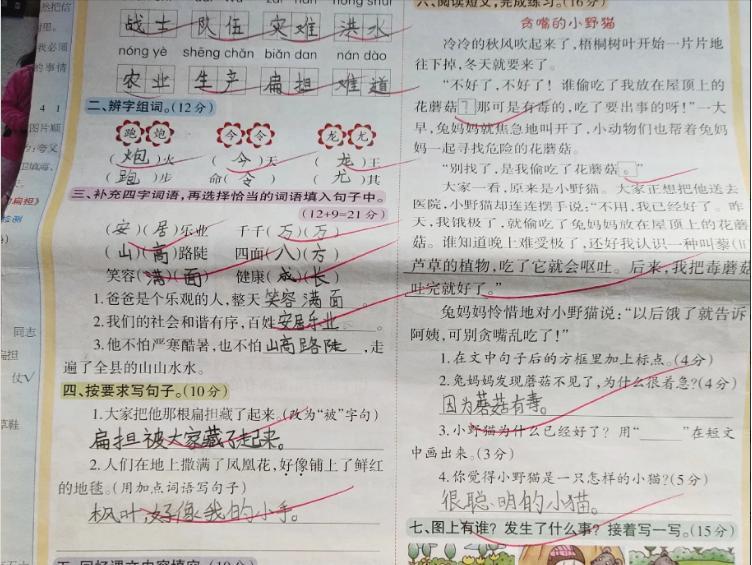 战士 队伍 灾难 洪水
nóng yè shēng chǎn biǎn dan nán dào
农业 生产 扁担 难道
二、辨字组词。(12分)
跑 炮 令 今 龙 尤
(炮)火 (今)天 (龙)王
(跑)步 命(令) (尤)其
三、补充四字词语,再选择恰当的词语填入句子中。
(12+9=21分)
(安)(居)乐业 千千(万)(万)
(山)(高)路陡 四面(八)(方)
笑容(满)(面) 健康(成)(长)
1.爸爸是个乐观的人,整天笑容满面。
2.我们的社会和谐有序,百姓安居乐业。
3.他不怕严寒酷暑,也不怕山高路陡,走
遍了全县的山山水水。
四、按要求写句子。(10分)
1.大家把他那根扁担藏了起来。(改为“被”字句)
扁担被大家藏了起来。
2.人们在地上撒满了凤凰花,好像铺上了鲜红
的地毯。(用加点词语写句子)
枫叶好像我的小手。
六、阅读短文,完成练习。(16分)
贪嘴的小野猫
冷冷的秋风吹起来了,梧桐树叶开始一片片地
往下掉,冬天就要来了。
“不好了,不好了!谁偷吃了我放在屋顶上的
花蘑菇?那可是有毒的,吃了要出事的呀!”一大
早,兔妈妈就焦急地叫开了,小动物们也帮着兔妈
妈一起寻找危险的花蘑菇。
“别找了,是我偷吃了花蘑菇。”
大家一看,原来是小野猫。大家正想把他送去
医院,小野猫却连连摆手说:“不用,我已经好了。昨
天,我饿极了,就偷吃了兔妈妈放在屋顶上的花蘑
菇。谁知道晚上难受极了,还好我认识一种叫藜(
芦草的植物,吃了它就会呕吐。后来,我把毒蘑菇
吐完就好了。”
兔妈妈怜惜地对小野猫说:“以后饿了就告诉
阿姨,可别贪嘴乱吃了!”
1.在文中句子后的方框里加上标点。(4分)
2.兔妈妈发现蘑菇不见了,为什么很着急?(4分)
因为蘑菇有毒。
3.小野猫为什么已经好了?用“____”在短文
中画出来。(3分)
4.你觉得小野猫是一只怎样的小猫?(5分)
很聪明的小猫。
七、图上有谁?发生了什么事?接着写一写。(15分)